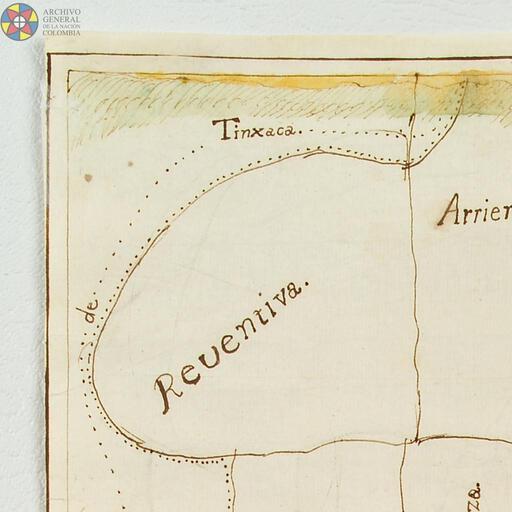 ARCHIVO
GENERAL
DE LA NACIÓN
COLOMBIA
Tinxaca.
Arrier
de
Reventiva.
za.